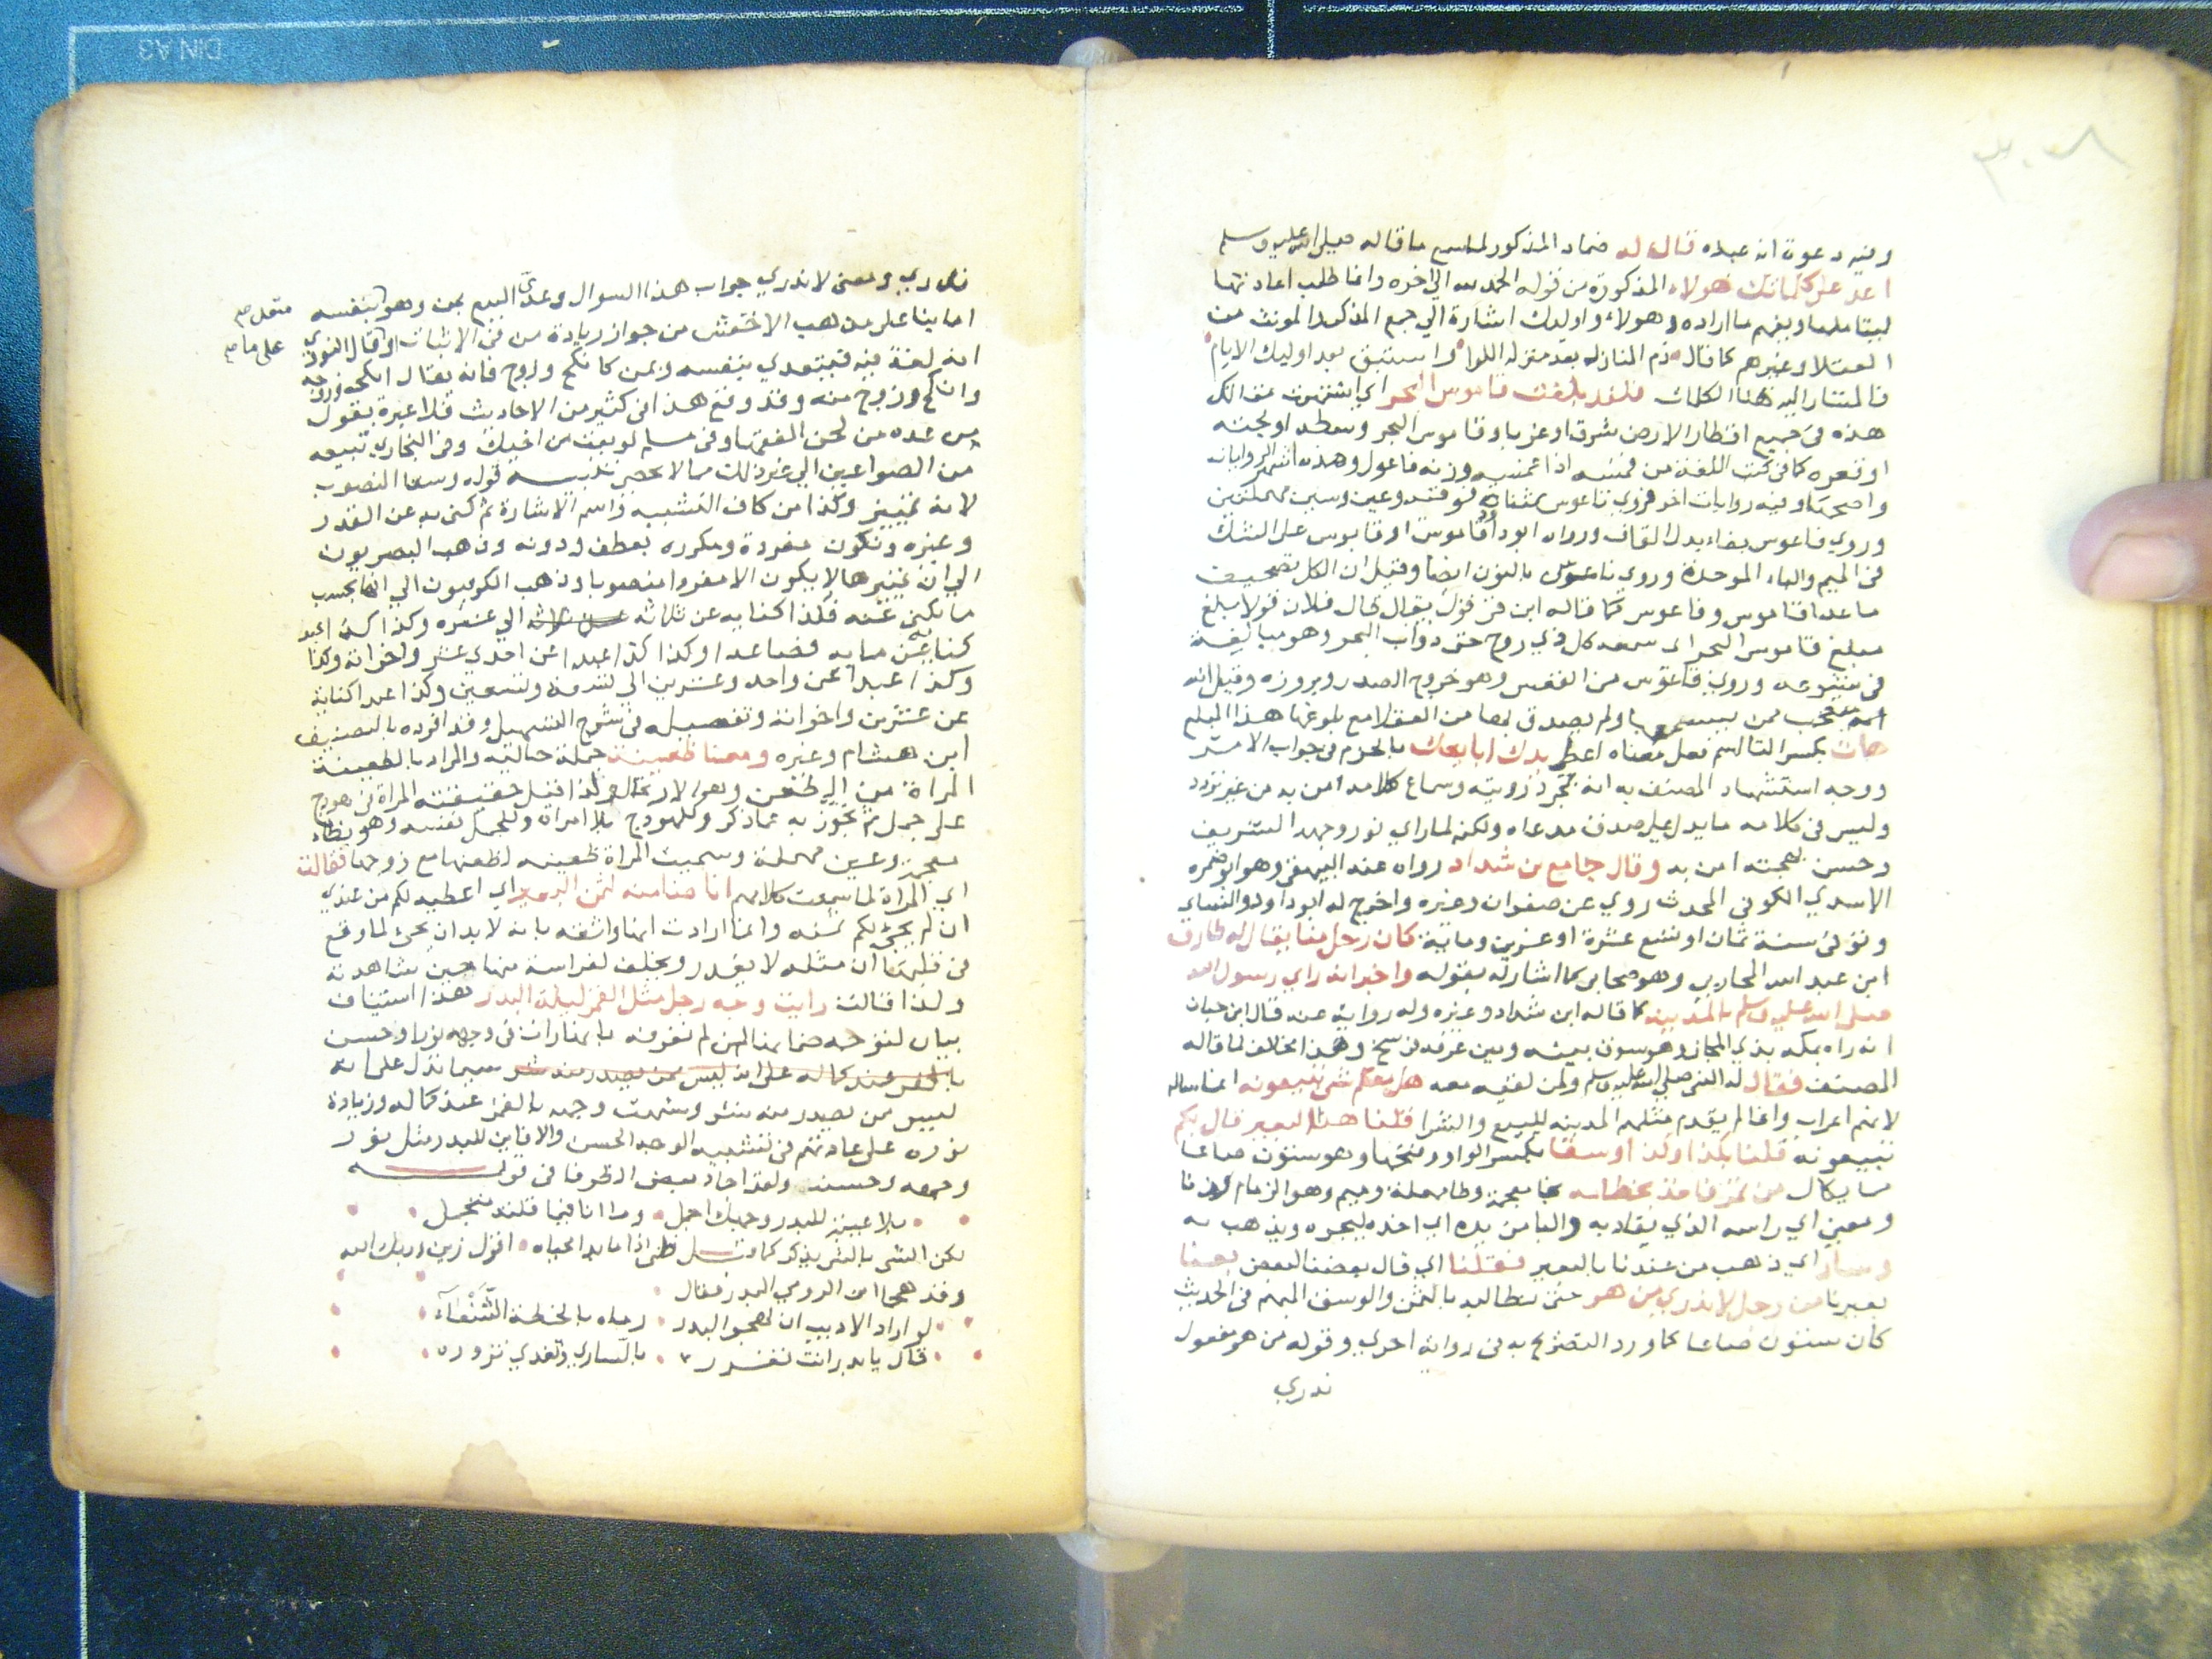 وفيه دعوة انه عبده قال له ضماد المذكور لما سمع ما قاله صلى الله عليه وسلم
اعد علي كلماتك هولاء المذكورة من قوله الحمد لله الي اخره وانما طلب اعادتها
ليتاملها ويفهم ما اراده وهولاء واوليك اشارة الي جمع المذكر والمونث من
العقلا وغيرهم كما قال ذم المنازل بعد منزلة اللوا واستبق بعد اوليك الايام
فالمشار اليه هنا الكلمات فلقد بلغت قاموس البحر اي اشتهرت
هذه في جميع اقطار الارض شرقا وغربا وقاموس البحر وسطه او لجته
او قعره كما في كتب اللغة من قمسه اذا غمسه وزنه فاعول وهذه اشهر الروايات
واصحها وفيه روايات اخر فروي تاعوس بمثناه فوقيه وعين وسين مهملتين
وروي فاعوس بفاء بدل القاف ورواه ابو داود قاموس او قابوس علي الشك
في الميم والباء الموحدة وروي ناعوس بالنون ايضا وقيل ان الكل تصحيف
ماعدا قاموس وفاعوس كما قاله ابن قرقول يقال قال فلان قولا بلغ
مبلغ قاموس البحر اي سمعه كل ذي روح حتي دواب البحر وهو مبالغة
في شيوعه وروي فاعوس من الفعس وهو خروج الصدر وبروزه وقيل انه
تعجب ممن يسمعها ولم يصدق بها من العقلا مع بلوغها هذا المبلغ
هات بكسر التا اسم فعل معناه اعط يدك ابايعك بالجزم في جواب الامر
ووجه استشهاد المصنف به انه بمجرد رويته وسماع كلامه امن به من غير تردد
وليس في كلامه ما يدل علي صدق مدعاه ولكنه لما راي نور وجهه الشريف
وحسن بهجته امن به وقال جامع بن شداد رواه عنه البيهقي وهو ابو ضمره
الاسدي الكوفي المحدث روي عن صفوان وغيره واخرج له ابو داود والنساي
وتوفي سنة ثمان او تسع عشرة او عشرين وماية كان رجل منا يقال له طارق
ابن عبد الله المحاربي وهو صحابي كما اشار له بقوله واخبر انه راي رسول الله
صلى الله عليه وسلم بالمدينه كما قاله ابن شداد وغيره وله رواية عنه قال ابن حبان
انه راه بمكه بذي المجاز وهو سوق وهذا مخالف لما قاله
المصنف فقال له النبي صلي الله عليه وسلم ولمن لقيه معه هل معكم شي تبيعونه انما ساله
لانهم اعراب وانما يقدم مثلهم المدينه للبيع والشرا قلنا هذا البعير قال بكم
تبيعونه قلنا بكذا وكذا وسقا بكسر الواو وفتحها وهو ستون صاعا
مما يكال من تمر فاخذ بخطامه بخا معجمة وطا مهملة وميم وهو الزمام
ومعني اي راسه الذي يقاد به والبا من يده اي اخذه ليجره ويذهب به
وسار اي ذهب من عندنا بالبعير فقلنا اي قال بعضنا لبعض بعنا
بعيرنا من رجل لا ندري من هو حتي نطالبه بالثمن والوسق المبهم في الحديث
كان ستون صاعا كما ورد التصريح به في رواية اخري وقوله من هو مفعول
ندري
ندري ومعني لا ندري جواب هذا السوال وعدي البيع بمن وهو متعد بنفسه
اما بنا علي مذهب الاخفش من جواز زيادة من في الاثبات او علي ما قال النووي
انه لغة فيه فيتعدي بنفسه وبمن كانكح وزوج فانه يقال انكحه وزوجه
وانكح وزوج منه وقد وقع هذا في كثير من الاحاديث فلا عبرة بقول
من عده من لحن الفقها وفي مسلم لو بعت من اخيك وفي البخاري تبيعه
من الصواغين الي غير ذلك مما لا يحصي تنبيه قوله وسقا النصوب
لانه تمييز وكذا من كاف التشبيه واسم الاشارة ثم كني به عن القدر
وغيره وتكون مفردة ومكرره بعطف ودونه وذهب البصريون
الي ان تمييزها لا يكون الا مفردا منصوبا وذهب الكوفيون الي انها بحسب
ما يكني عنه فكذا كنايه عن ثلاثة الي عشرة وكذا كذا عبد
كناية عن مايه فصاعدا وكذا كذا عبدا عن احدي عشر واخواته وكذا
وكذا عبدا عن واحد وعشرين الي تسعة وتسعين وكذا عبدا كناية
عن عشرين واخواته وتفصيله في شرح التسهيل وقد افرده بالتصنيف
ابن هشام وغيره ومعنا ظعينة جملة حالية والمراد بالظعينة
المراة من الظعن وهو الارتحال فلذا قيل حقيقته المراة في هودج
علي جمل ثم تجوز به عما ذكر وللهودج بلا امراة وللجمل نفسه وهو بظاء
معجمة وعين مهملة وسميت المراة ظعينه لظعنها مع زوجها فقالت
اي المراة لما سمعت كلامهم انا ضامنه لثمن البعير اي اعطيه لكم من عندي
ان لم يجئ لكم ثمنه وانما ارادت انها واثقه بانه لابد ان يجئ لما وقع
في قلبها ان مثله لا يغدر ويخلف لفراسة منها حين شاهدته
ولذا قالت رايت وجه رجل مثل القمر ليلة البدر هذا استيناف
بيان لتوجه ضمانها لمن لم تعرفه بامارات في وجهه نورا وحسن
بالقمر عند كماله علي انه ليس ممن يصدر منه شر سيما تدل علي انه
ليس ممن يصدر منه شر وشبهت وجهه بالقمر عند كماله وزيادة
نوره علي عادتهم في تشبيه الوجه الحسن والافاين للبدر مثل نور
وجهه وحسنه ولقد اجاد بعض الظرفا في قوله
بلا عيينر للبدر وجهك اجمل وما انا فيما قلته متجمل
لكن الشي بالشي يذكر كما قيل ظبي اذا ما بدا محياه اقول ربي وربك الله
وقد هجا ابن الرومي البدر فقال
لو اراد الاديب ان يهجو البدر رماه بالخطة الشنعاء
قال يا بدر انت تغدر بالساري وتغدي نزوره
متعد صح
علي ما صح